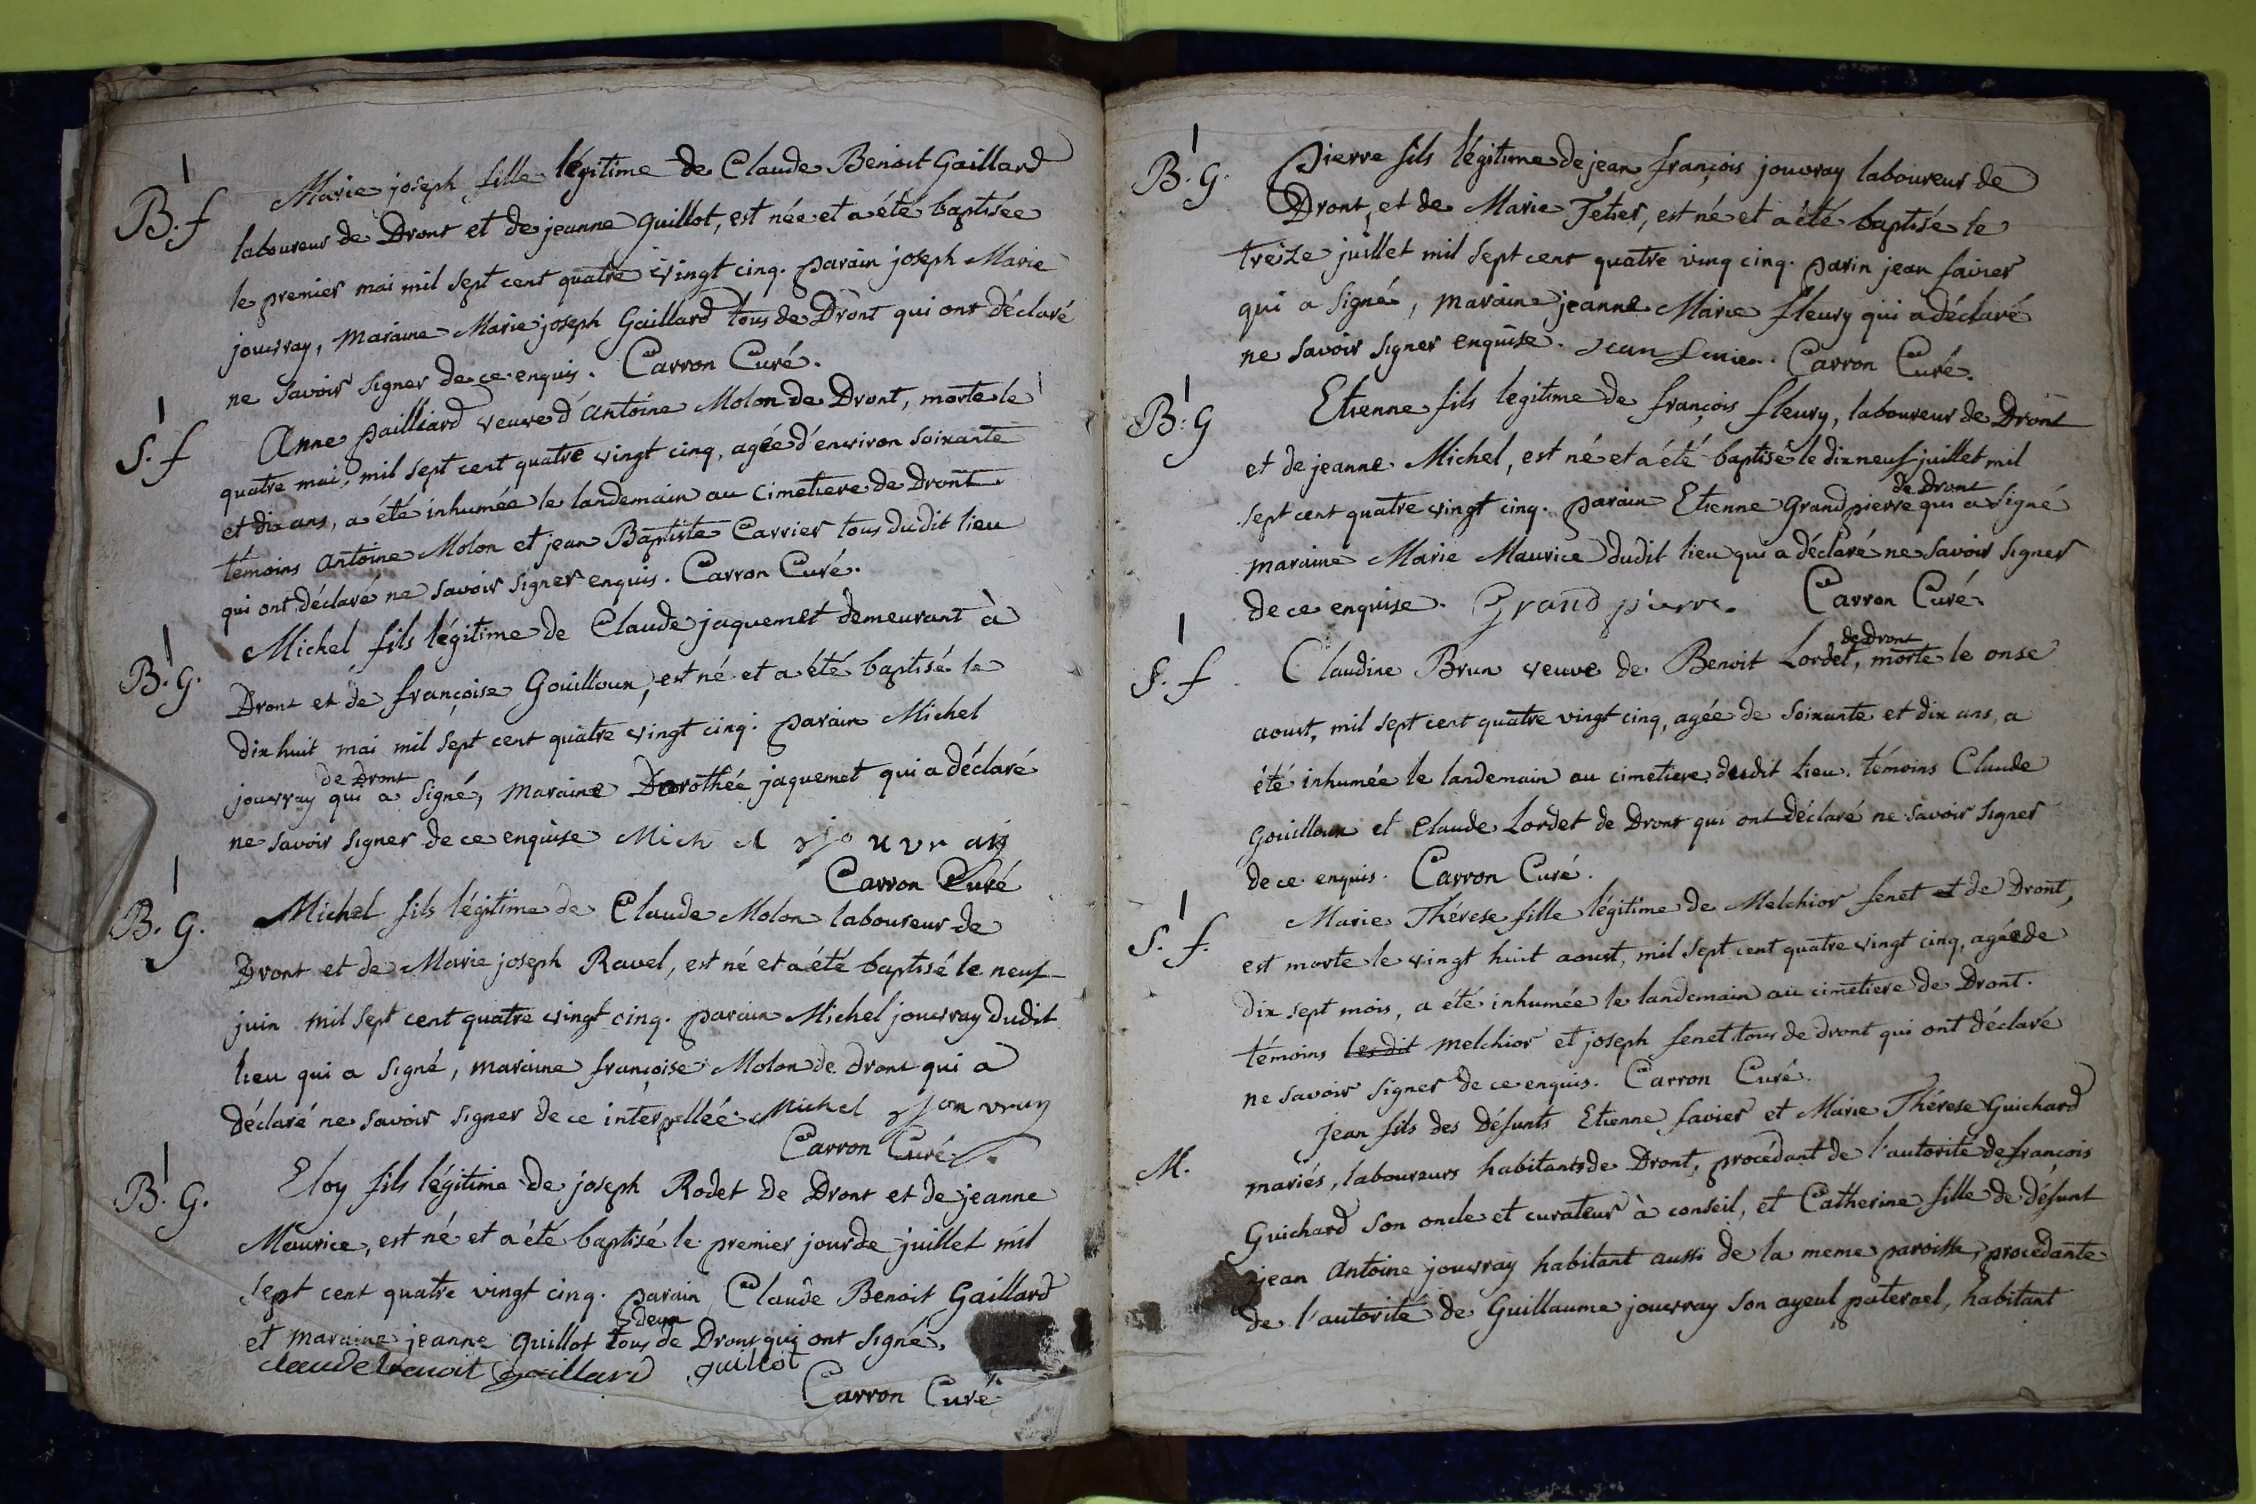 B. f
Marie joseph fille légitime de Claude Benoit Gaillard
laboureur de Dront et de jeanne Guillot, est née et a été baptisée
le premier mai mil sept cent quatre vingt cinq. parain joseph Marie
jouvray, maraine Marie joseph Gaillard tous de Dront qui ont déclaré
ne savoir signer de ce enquis. Carron Curé.
S. f
Anne pailliard veuve d'antoine Molon de Dront, morte le
quatre mai, mil sept cent quatre vingt cinq, agée d'environ soixante
et dix ans, a été inhumée le landemain au cimetiere de Dront
témoins antoine Molon et jean Baptiste Carrier tous dudit lieu
qui ont déclaré ne savoir signer enquis. Carron Curé.
B. G.
Michel fils légitime de Claude jaquemet demeurant à
Dront et de françoise Gouilloux, est né et a été baptisé le
dix huit mai mil sept cent quatre vingt cinq. parain Michel
de Dront
jouvray qui a signé, maraine Dorothée jaquemet qui a déclaré
ne savoir signer de ce enquise Michel jouvray
Carron Curé
B. G.
Michel fils légitime de Claude Molon laboureur de
Dront et de Marie joseph Ravel, est né et a été baptisé le neuf
juin mil sept cent quatre vingt cinq. parain Michel jouvray dudit
lieu qui a signé, maraine françoise Molon de dront qui a
déclaré ne savoir signer de ce interpellée. Michel jouvray
Carron Curé.
B. G.
Eloy fils légitime de joseph Rodet de Dront et de jeanne
Maurice, est né et a été baptisé le premier jour de juillet mil
sept cent quatre vingt cinq. parain Claude Benoit Gaillard
deux
et maraine jeanne Guillot tous de Dront qui ont signé.
claude benoit gaillard guillot
Carron Curé
B. G.
Pierre fils légitime de jean françois jouvray laboureur de
Dront, et de Marie Tetier, est né et a été baptisé le
treize juillet mil sept cent quatre ving cinq. parin jean favier
qui a signé, maraine jeanne Marie fleury qui a déclaré
ne savoir signer enquise. Jean Carron Curé.
B. G
Etienne fils legitime de françois fleury, laboureur de Dront
et de jeanne Michel, est né et a été baptisé le dix neuf juillet mil
de Dront
sept cent quatre vingt cinq. parain Etienne Grandpierre qui a signé
maraine Marie Maurice dudit lieu qui a déclaré ne savoir signer
de ce enquise. Grand pierre. Carron Curé.
S. f
de Dront
Claudine Brun veuve de Benoit Lordet, morte le onse
aoust, mil sept cent quatre vingt cinq, agée de soixante et dix ans, a
été inhumée le landemain au cimetiere dudit lieu. témoins Claude
Gouilloux et Claude Lordet de Dront qui ont déclaré ne savoir signer
de ce enquis. Carron Curé.
S. f.
Marie Thérese fille légitime de Melchior fenet et de Dront,
est morte le vingt huit aoust, mil sept cent quatre vingt cinq, agée de
dix sept mois, a été inhumée le landemain au cimetiere de Dront.
témoins lesdit melchior et joseph fenet tous de dront qui ont déclaré
ne savoir signer de ce enquis. Carron Curé.
M.
jean fils des défunts Etienne favier et Marie Thérese Guichard
mariés, laboureurs habitants de Dront, procédant de l'autorité de françois
Guichard son oncle et curateur à conseil, et Catherine fille de défunt
jean antoine jouvray habitant aussi de la meme paroisse, procédante
de l'autorité de Guillaume jouvray son ayeul paternel, habitant